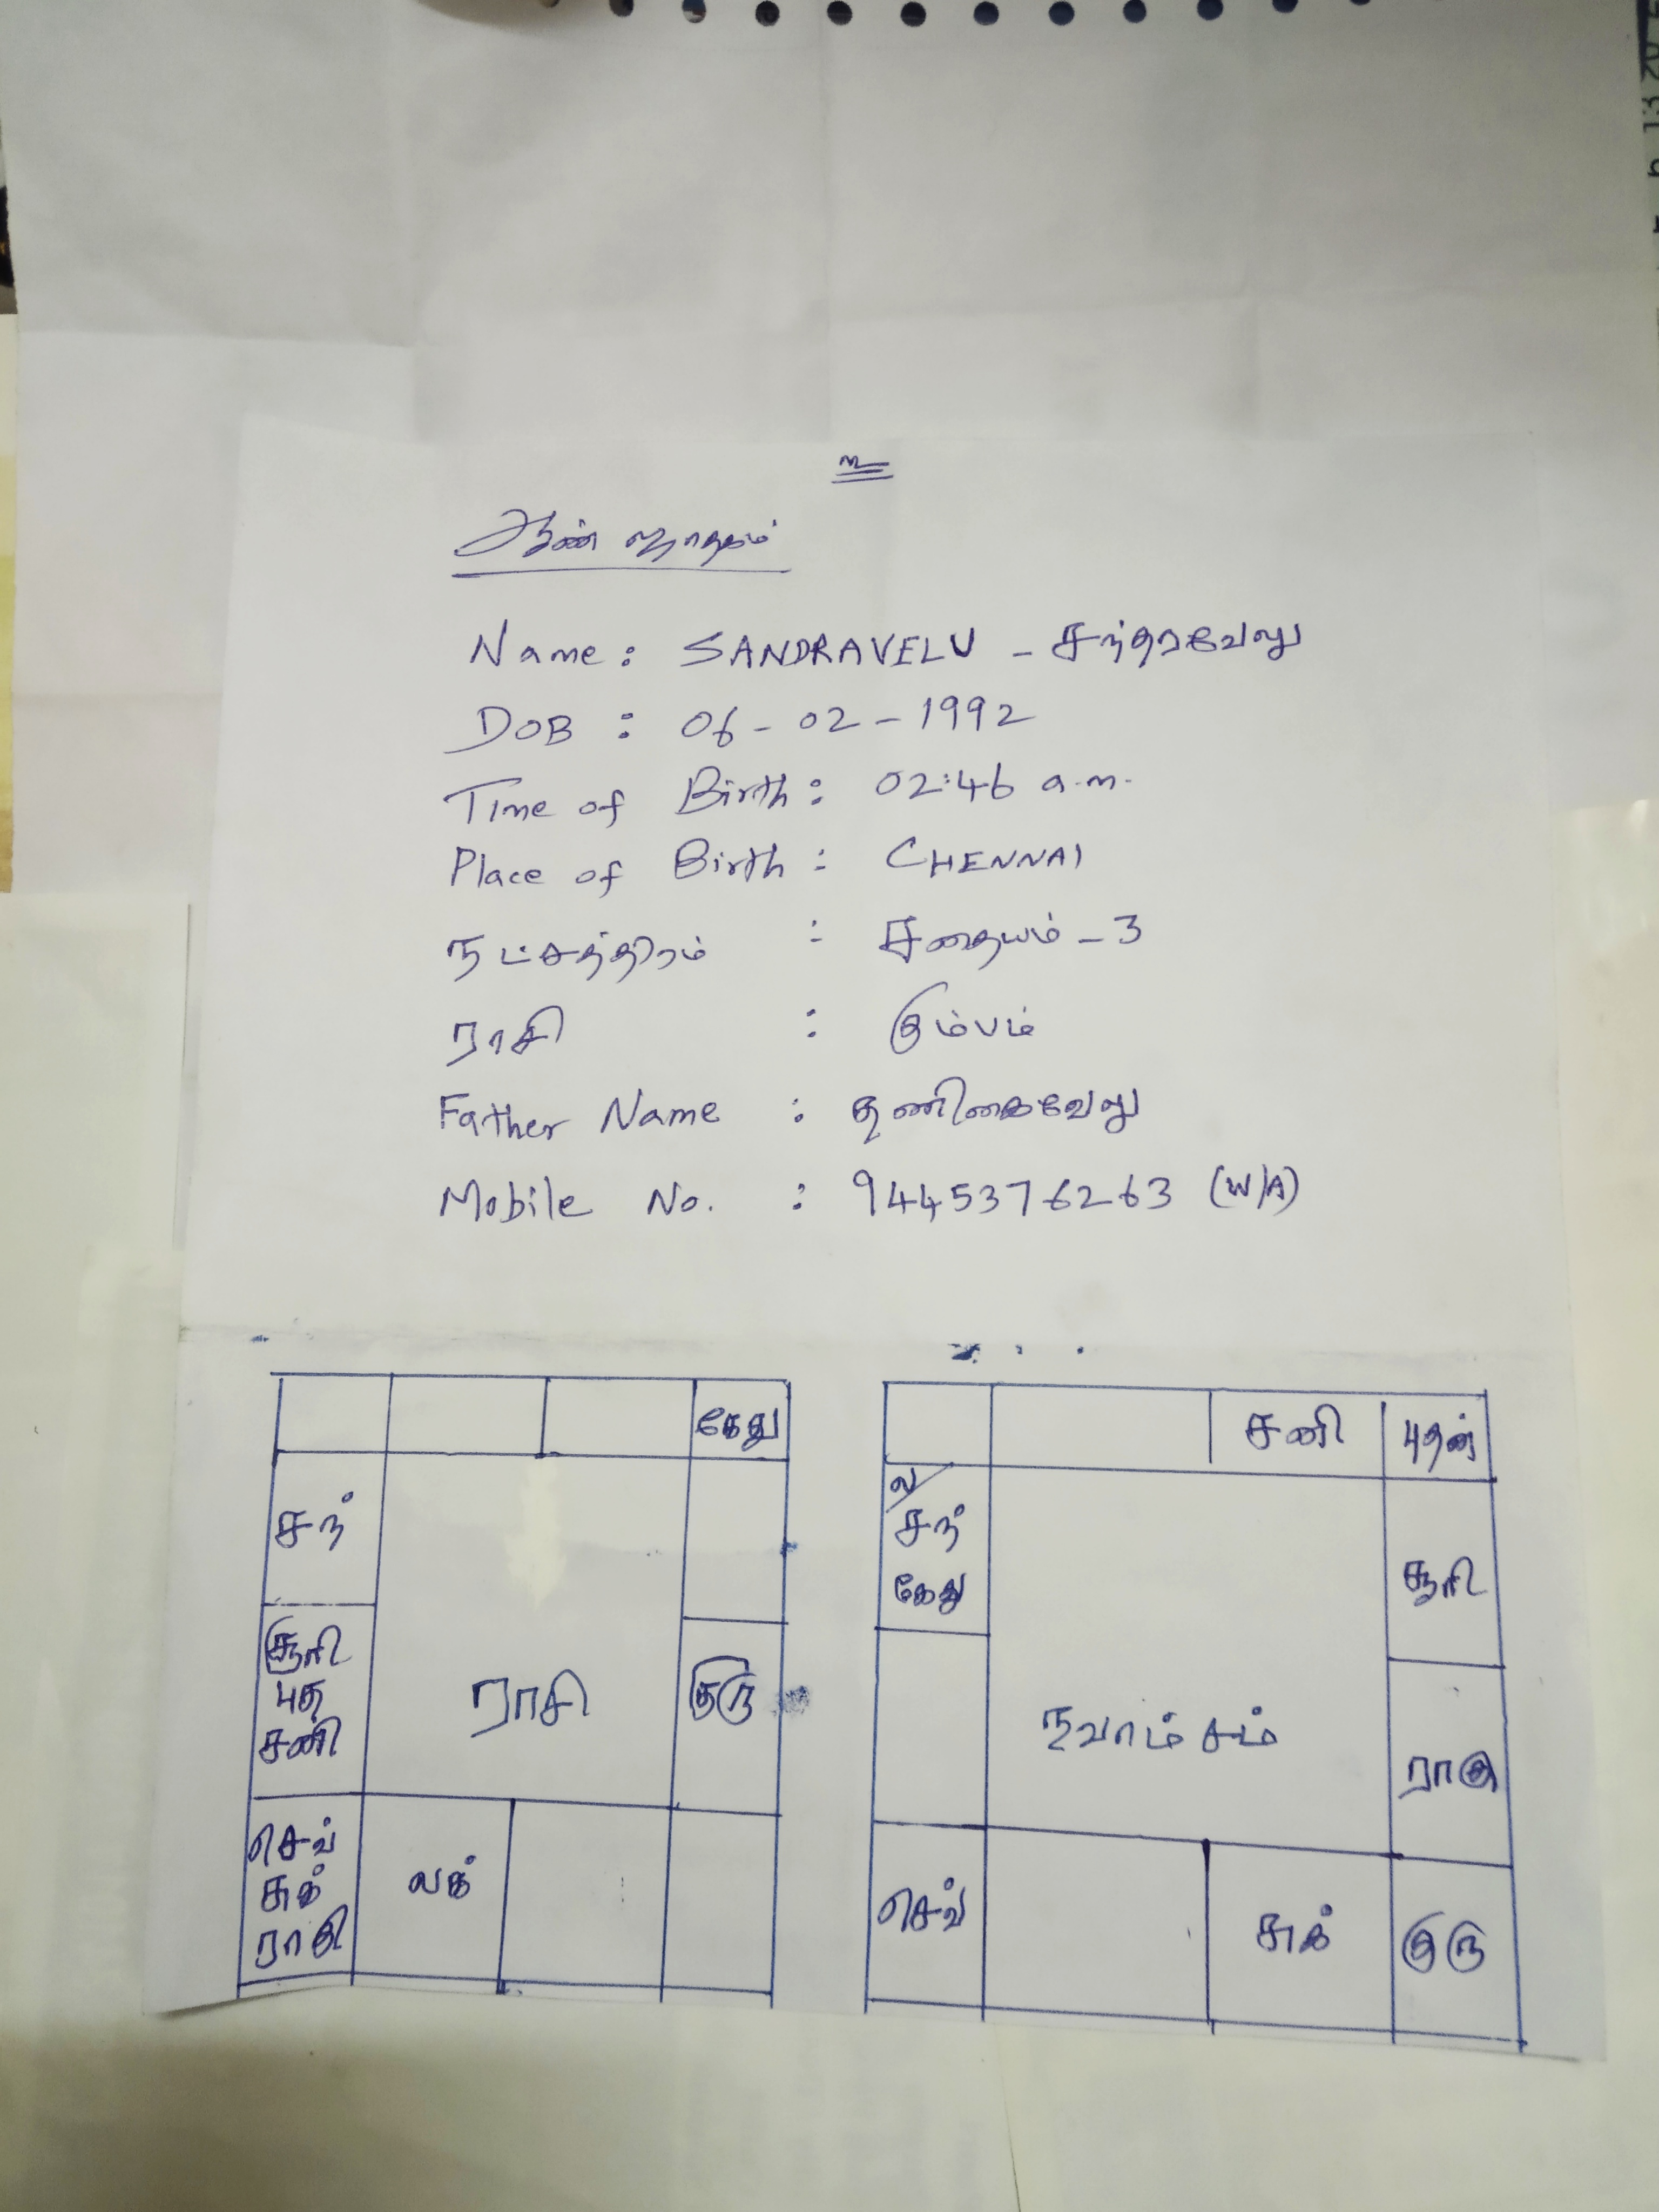 உ
ஆண் ஜாதகம்
Name : SANDRAVELU - சந்தரவேலு
DOB : 06-02-1992
Time of Birth : 02:46 a.m.
Place of Birth : CHENNAI
நட்சத்திரம் : சதையம் - 3
ராசி : கும்பம்
Father Name : தணிகைவேலு
Mobile No. : 9445376263 (W/A)
கேது
சந்
சூரி
புத
சனி
ராசி
குரு
செவ்
சுக்
ராகு
லக்
சனி
புதன்
ல
சந்
கேது
சூரி
நவாம்சம்
ராகு
செவ்
சுக்
குரு